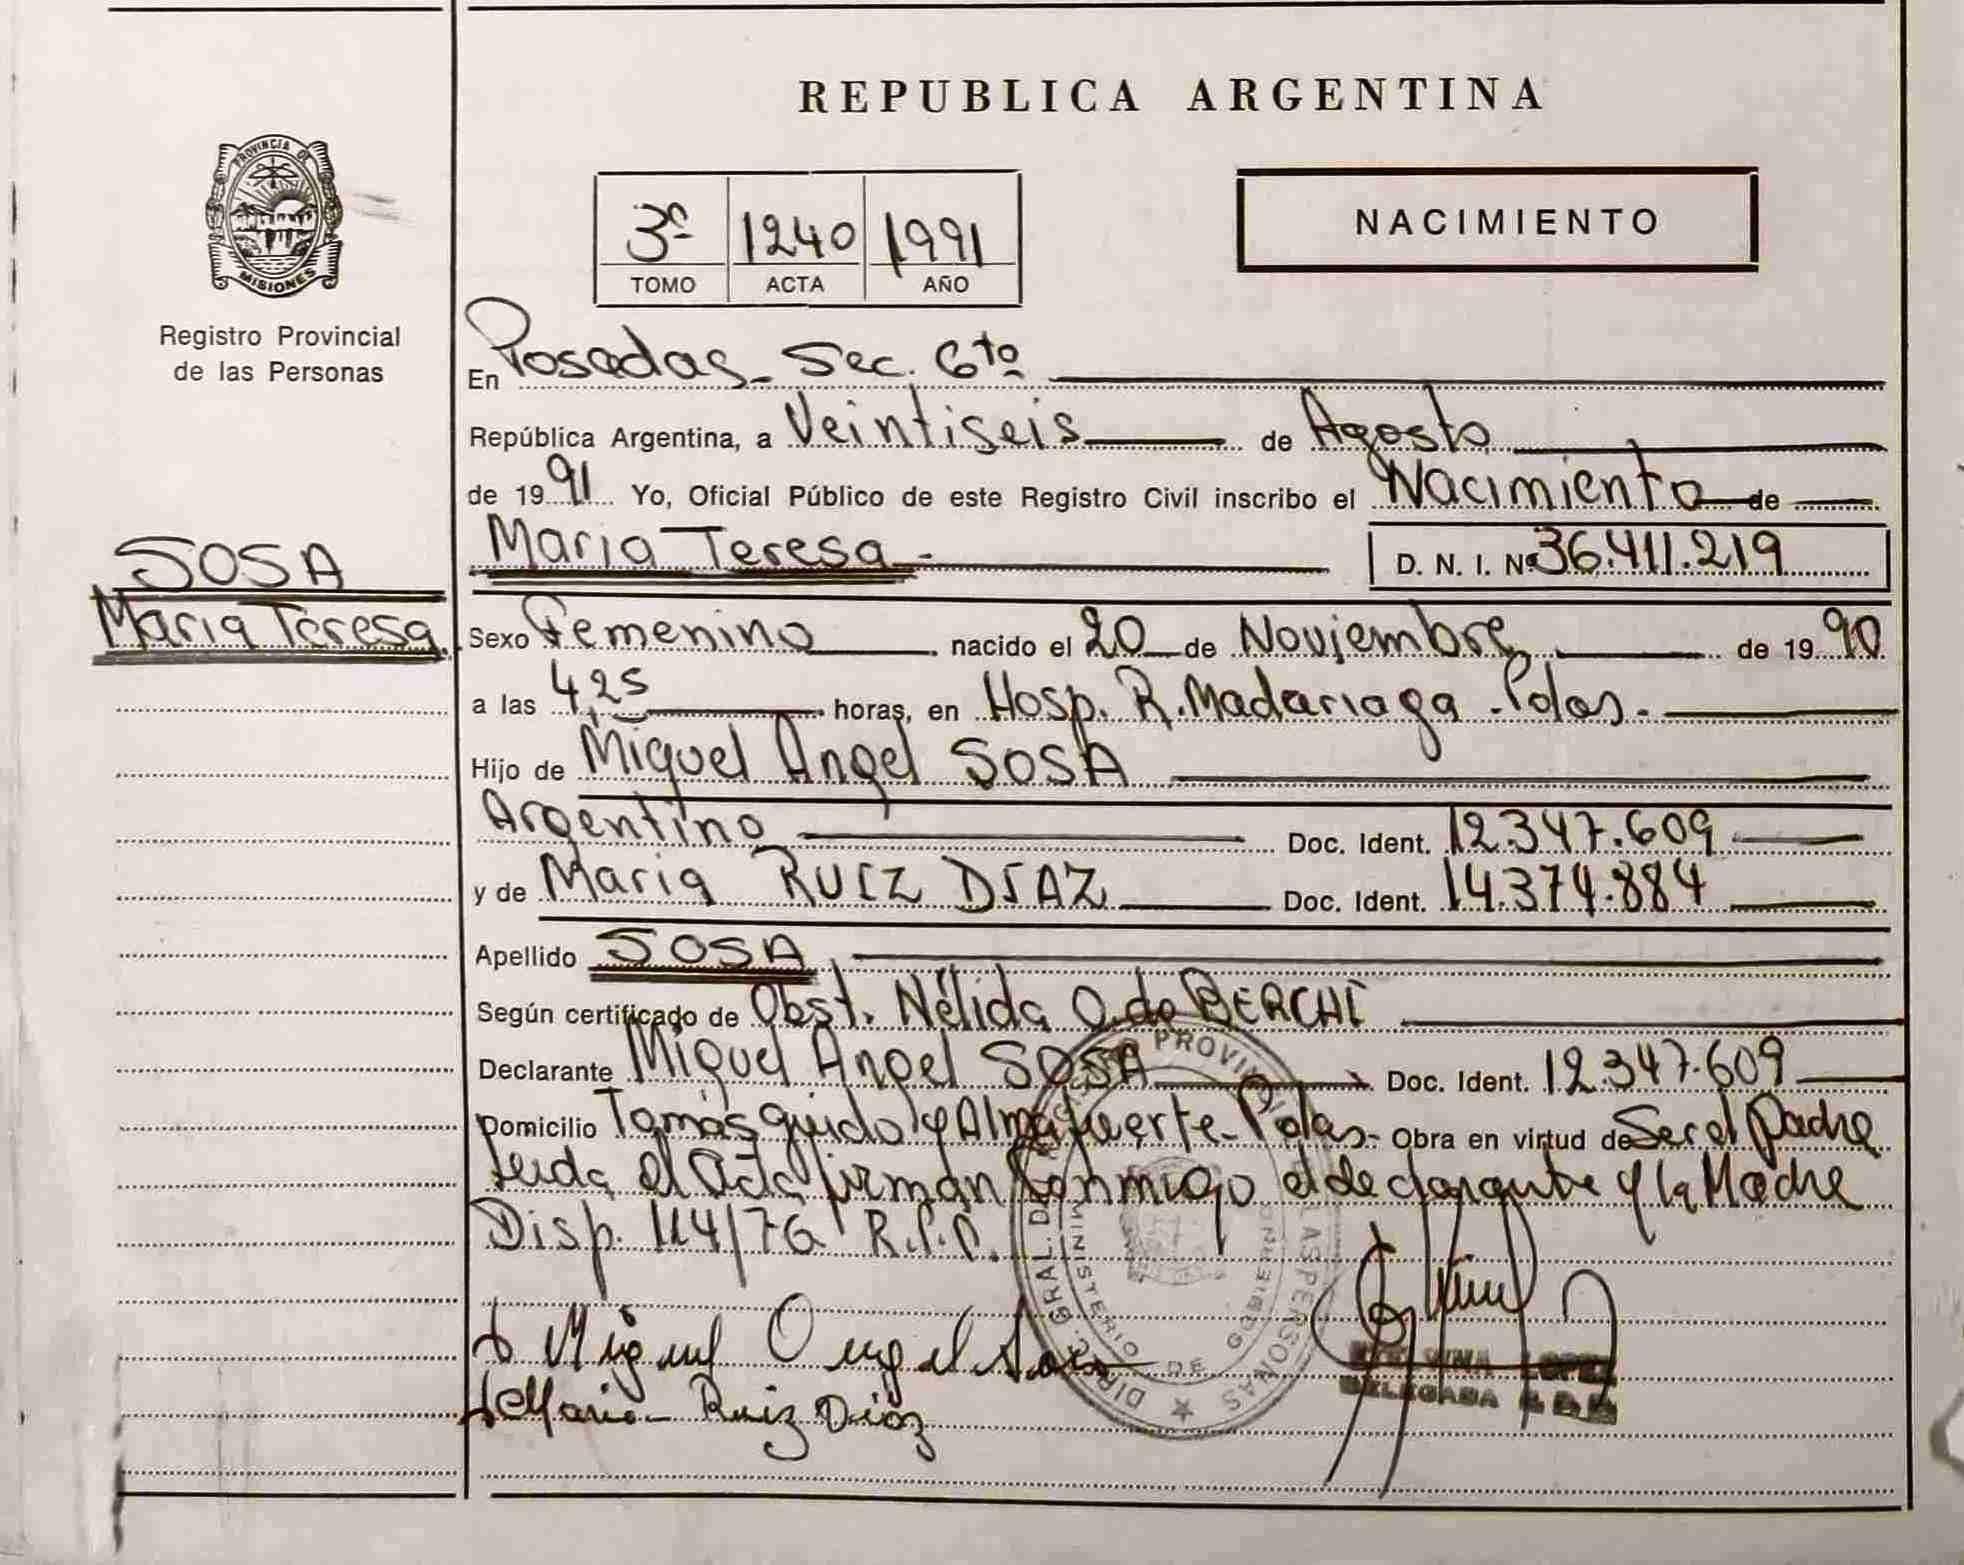 REPUBLICA ARGENTINA
PROVINCIA DE
MISIONES
Registro Provincial
de las Personas
3º 1240 1991
TOMO ACTA AÑO
NACIMIENTO
En Posadas - Sec. 6ta
República Argentina, a Veintiseis de Agosto
de 1991 Yo, Oficial Público de este Registro Civil inscribo el Nacimiento de
SOSA
Maria Teresa
Maria Teresa - D. N. I. Nº 36.411.219
Sexo Femenino nacido el 20 de Noviembre de 1990
a las 4,25 horas, en Hosp. R. Madariaga - Pdas.
Hijo de Miguel Angel SOSA
Argentino Doc. Ident. 12.347.609
y de Maria RUIZ DIAZ Doc. Ident. 14.374.884
Apellido SOSA
Según certificado de Obst. Nélida O. de BERCHI
Declarante Miguel Angel SOSA Doc. Ident. 12.347.609
Domicilio Tomás guido y Almafuerte - Pdas - Obra en virtud de Ser el padre
Leida el Acta firman conmigo el declarante y la Madre
Disp. 114/76 R.P.P.
Miguel Angel Sosa
Maria Ruiz Diaz
DIRC. GRAL. DE PROVINCIAL DE LAS PERSONAS
MINISTERIO DE GOBIERNO
LOPEZ
DELEGADA